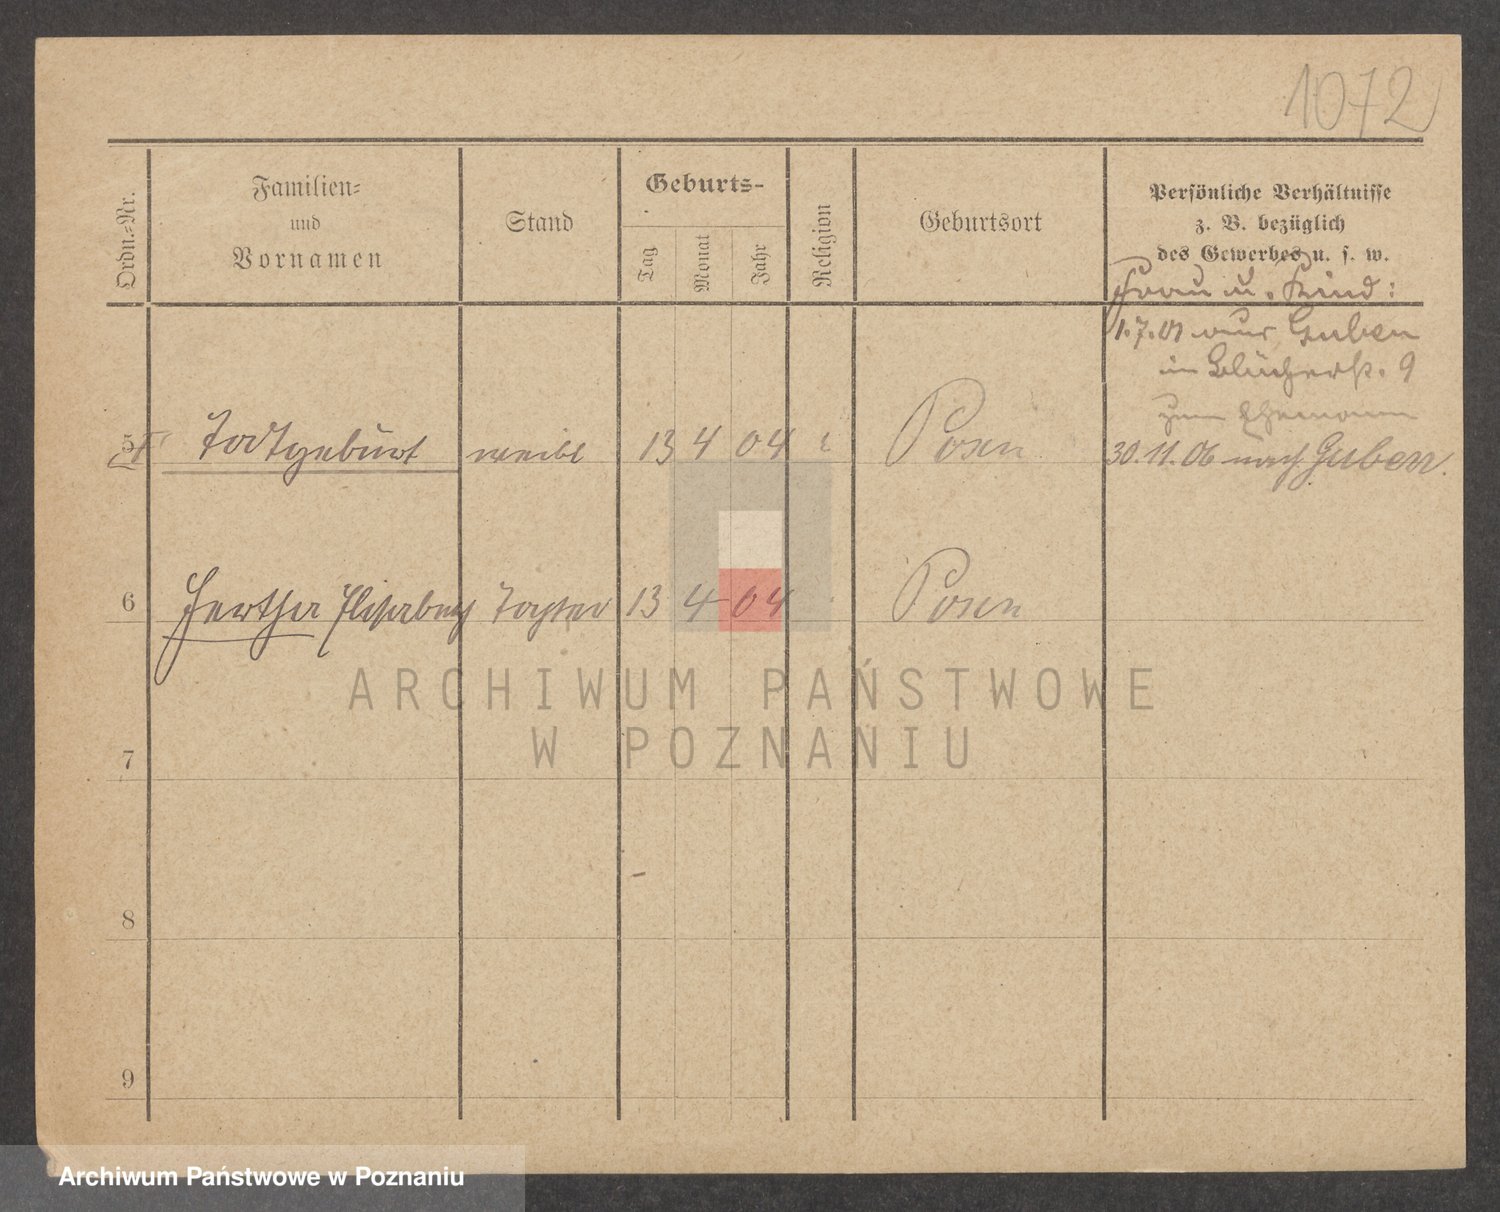 1072
Ordn.-Nr.
Familien-
und
Vornamen
Stand
Geburts-
Tag
Monat
Jahr
Religion
Geburtsort
Persönliche Verhältnisse
z. B. bezüglich
des Gewerbes u. s. w.
Frau u. Kind:
1.7.01 aus Guben
in Blücherstr. 9
zum Ehemann
5 Todtgeburt weibl 13 4 04 Posen 30.11.06 nach Guben.
6 Hertha Elisabeth Tochter 13 4 04 Posen
ARCHIWUM PAŃSTWOWE
W POZNANIU
7
8
9
Archiwum Państwowe w Poznaniu